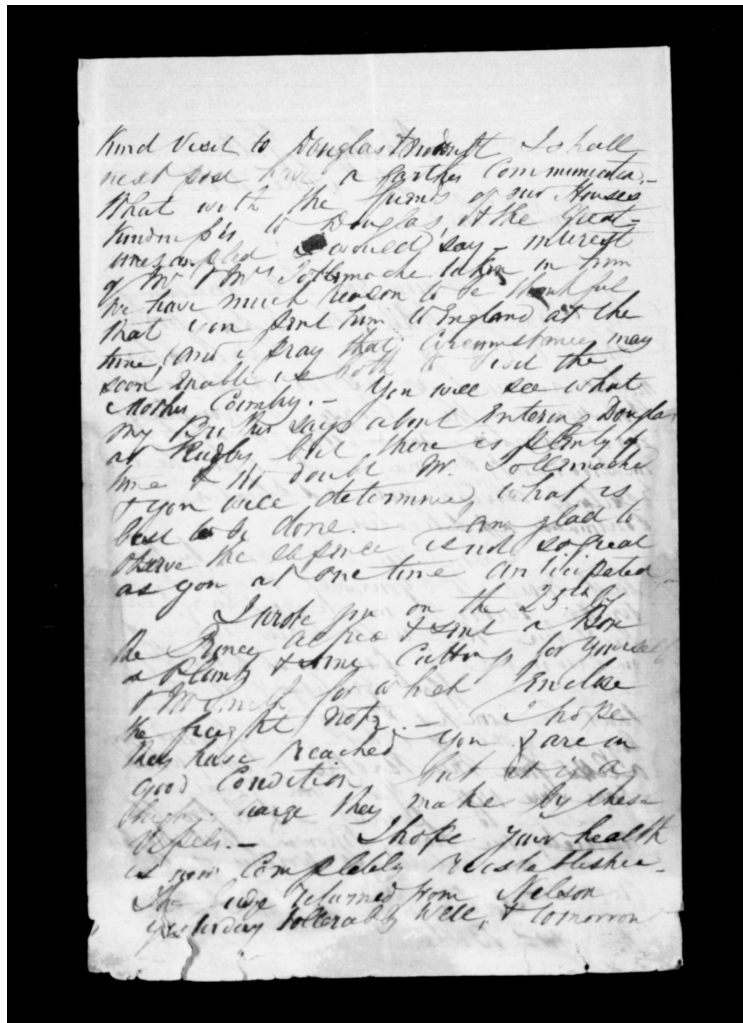 Kind Visit to Douglas & I shall
next post have a farther Communicatn.-
What with the friends of our Houses
Kindness to Douglas & the great-
unexampled I would say - interest
of Mr & Mrs Tollemache taken in him
We have much reason to be thankful
that you sent him to England at the
time, and I pray that circumstances may
soon enable us both to visit the
Mother Country. - You will see what
my Brother says about Entering Douglas
at Rugby but there is plenty of
time & no doubt Mr. Tollemache
& you will determine what is
best to be done. I am glad to
observe the expence is not so great
as you at one time anticipated,-
I wrote you on the 25th by
the Prince Alfred & sent a Box
of Plants & some Cuttings for yourself
& for which I enclose
the freight note. - I hope
they have reached you & are in
good Condition, but it is a
charge they make by these
Vessels. - I hope your health
is now Completely reestablished -
The Judge returned from Nelson
yesterday tollerably well, & tomorrow